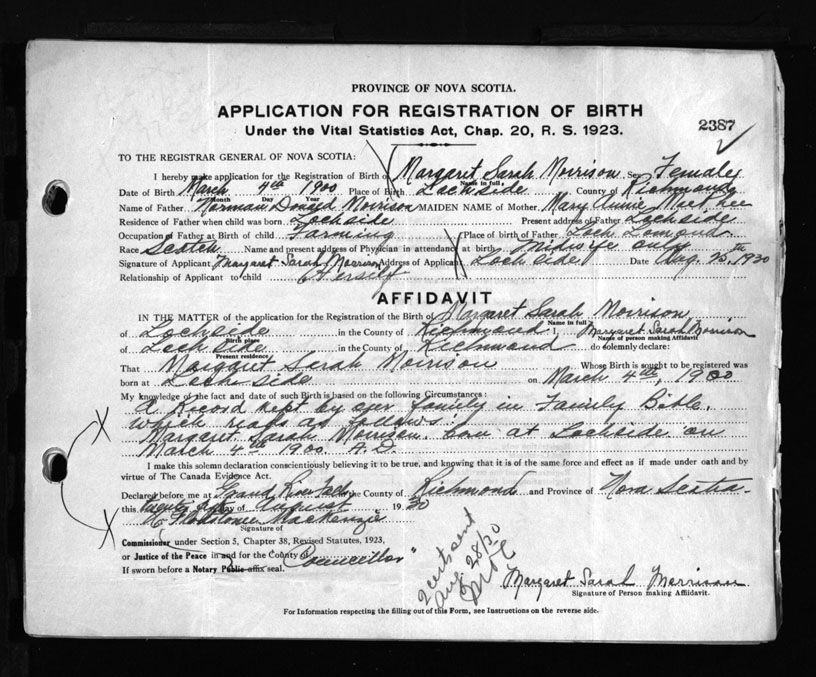 PROVINCE OF NOVA SCOTIA.
APPLICATION FOR REGISTRATION OF BIRTH
Under the Vital Statistics Act, Chap. 20, R. S. 1923.
2387
TO THE REGISTRAR GENERAL OF NOVA SCOTIA:
I hereby make application for the Registration of Birth of Margaret Sarah Morrison Sex Female
Name in full
Date of Birth March 4th 1900 Place of Birth Lochside County of Richmond
Month Day Year
Name of Father Norman Donald Morrison MAIDEN NAME of Mother Mary Annie
Residence of Father when child was born Lochside Present address of Father Lochside
Occupation of Father at Birth of child Farming Place of birth of Father Loch Lomond
Race Scotch Name and present address of Physician in attendance at birth Midwife only
Signature of Applicant Margaret Sarah Morrison Address of Applicant Loch Side Date Aug. 25th, 1930
Relationship of Applicant to child Herself
AFFIDAVIT
IN THE MATTER of the application for the Registration of the Birth of Margaret Sarah Morrison
Name in full
of Lochside in the County of Richmond I, Margaret Sarah Morrison
Birth place Name of person making Affidavit
of Loch Side in the County of Richmond do solemnly declare:
Present residence
That Margaret Sarah Morrison Whose Birth is sought to be registered was
born at Loch Side on March 4th, 1900
My knowledge of the fact and date of such Birth is based on the following Circumstances:
A Record kept by our family in Family Bible,
which reads as follows:
Margaret Sarah Morrison, born at Lochside on
March 4th 1900. A.D.
I make this solemn declaration conscientiously believing it to be true, and knowing that it is of the same force and effect as if made under oath and by
virtue of The Canada Evidence Act.
Declared before me at Grand River in the County of Richmond and Province of Nova Scotia
this day of August 1930
MacKenzie
Signature of
Commissioner under Section 5, Chapter 38, Revised Statutes, 1923,
or Justice of the Peace in and for the County of "Councillor"
If sworn before a Notary Public affix seal.
Aug 28/30
Margaret Sarah Morrison
Signature of Person making Affidavit.
For Information respecting the filling out of this Form, see Instructions on the reverse side.